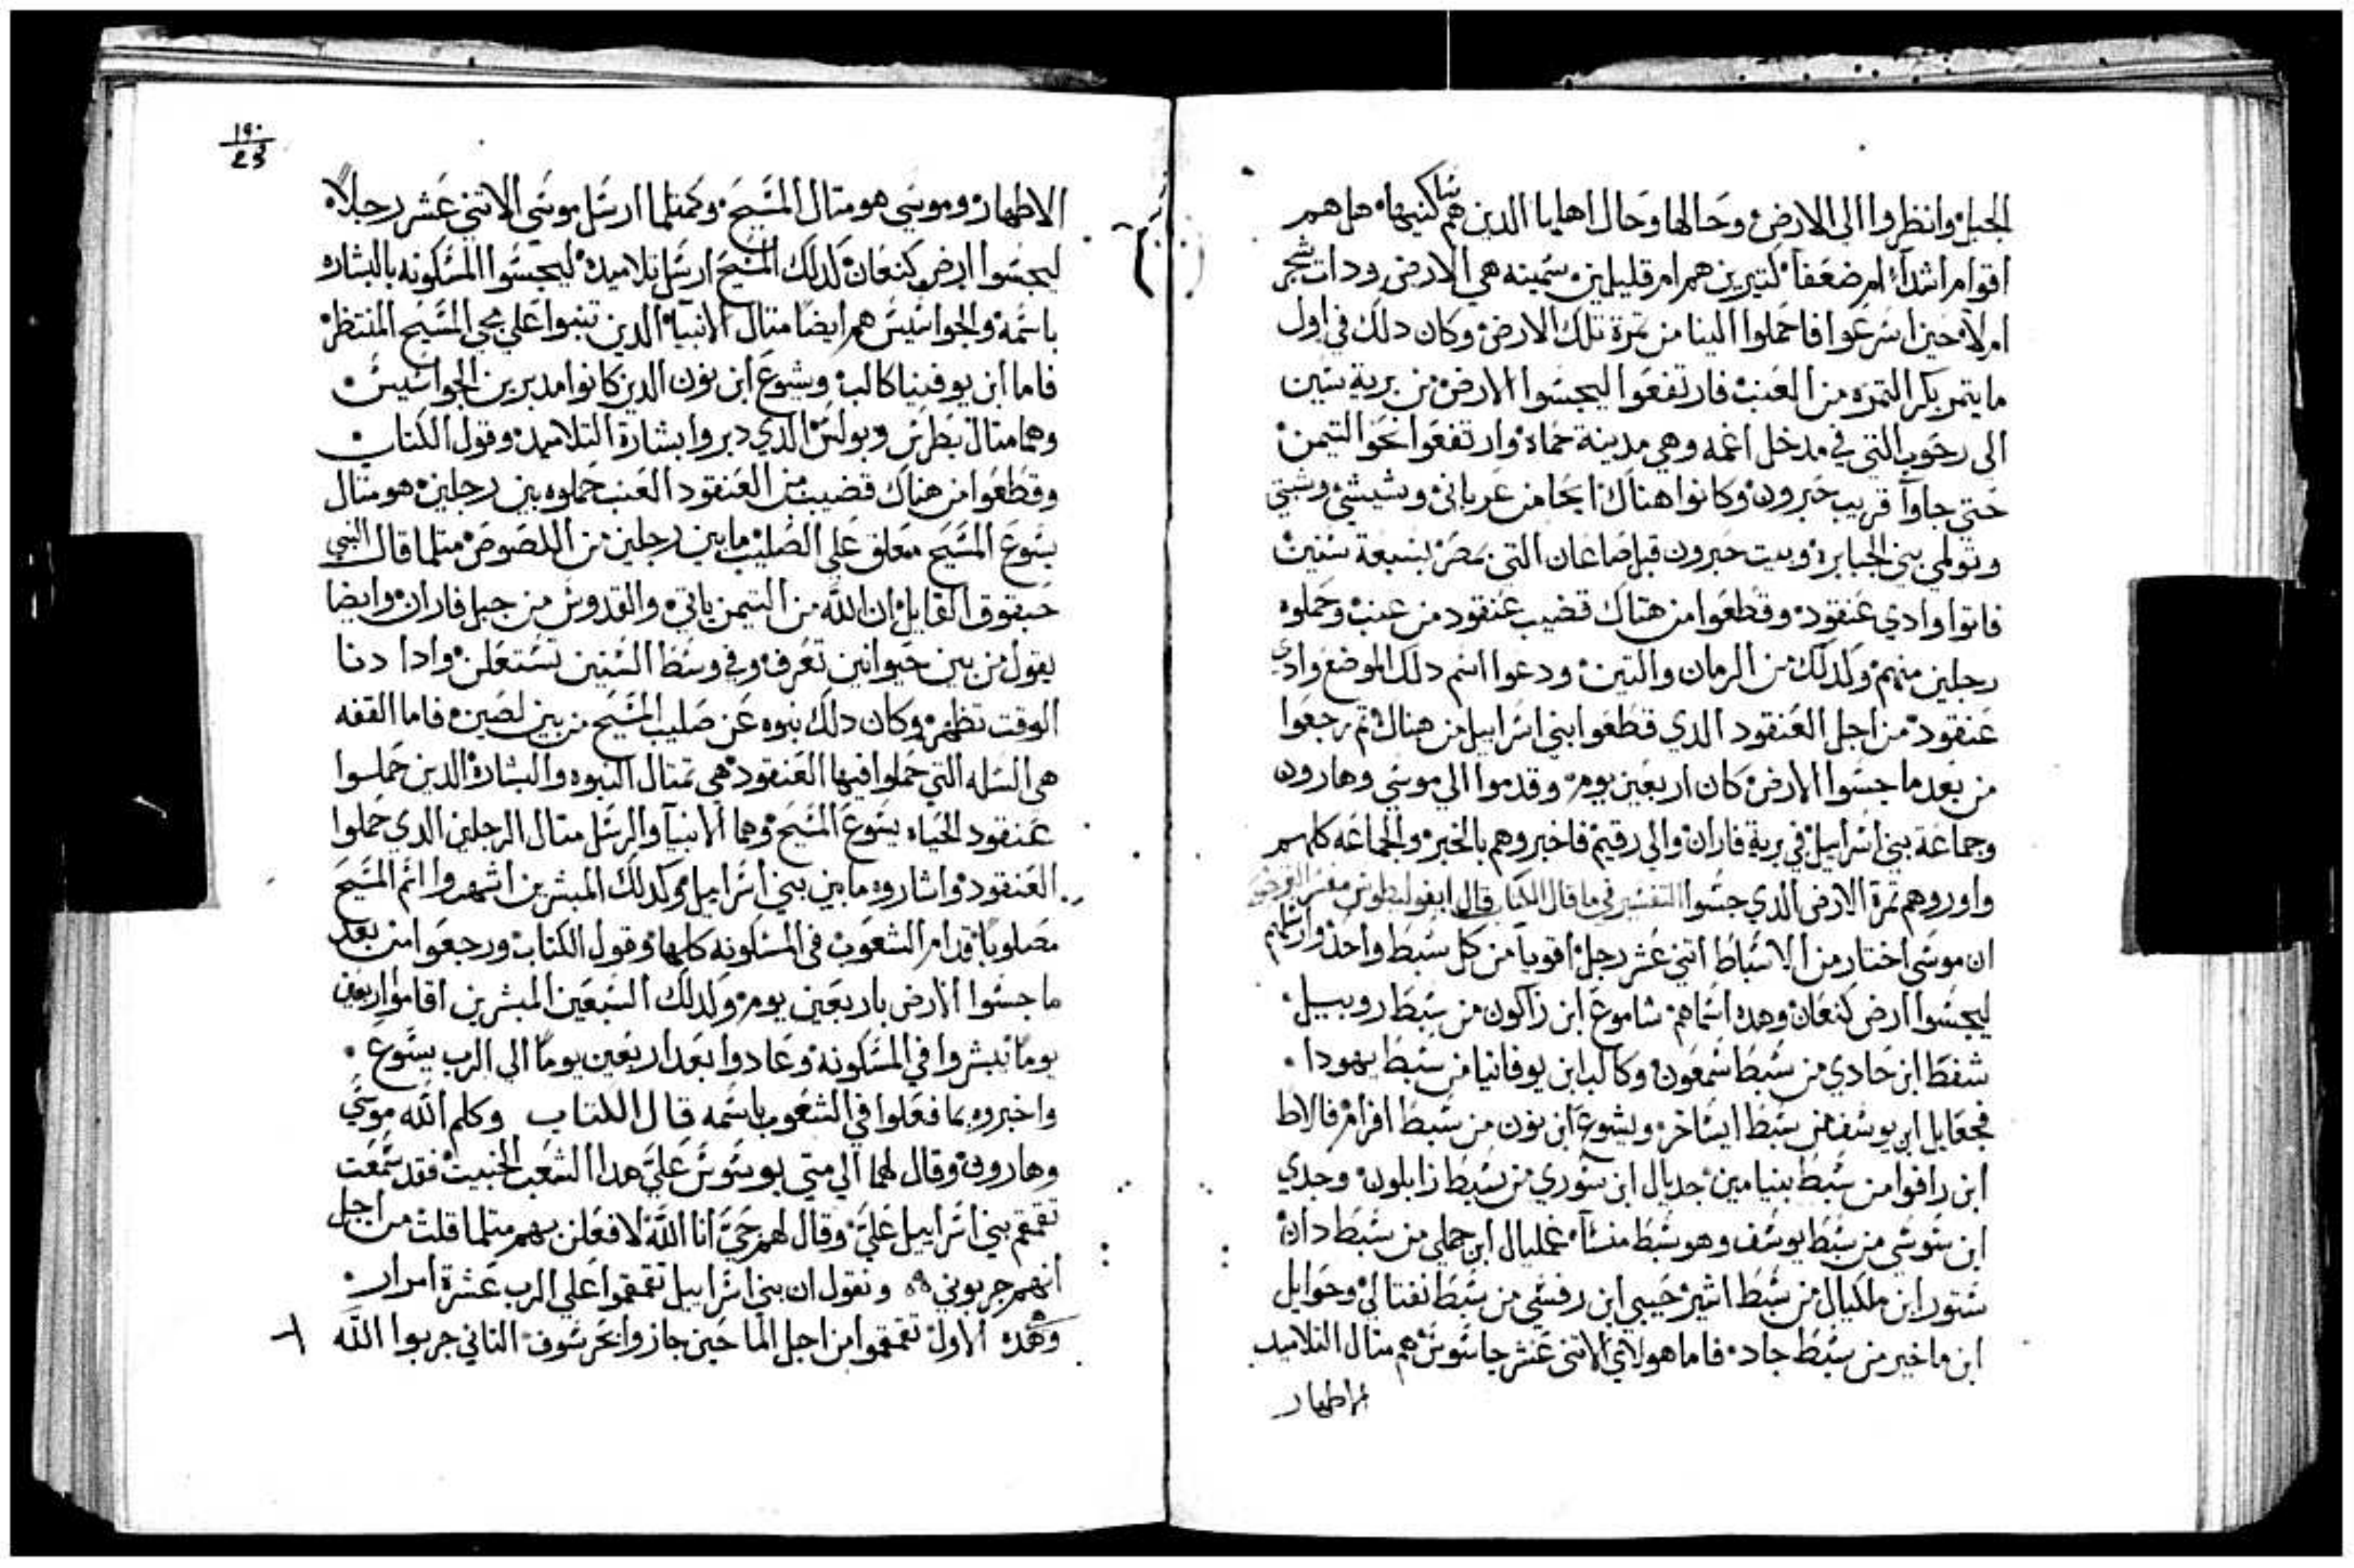 الجبل وانظروا الى الارض وحالها وحال اهلها الدين هم ساكنيها هل هم
اقوام اشدآء ام ضعفآ كتيرين هم ام قليلين سمينه هي الارض ودات شجر
ام لا حين اسرعوا فاحملوا الينا من تمرة تلك الارض وكان دلك في اول
ما يتمر بكر التمره من العنب فارتفعوا ليجسوا الارض من برية سين
الى رحوب التي في مدخل اغمه وهي مدينة حماه وارتفعوا نحو التيمن
حتي جاوآ قريب حبرون وكانوا هناك من عرباني وشيشي
وتولمي بني الجبابره وبيت حبرون قبل صاعان التي بمصر بسبعة سنين
فاتوا وادي عنقود وقطعوا من هناك قضيب عنقود من عنب وحملوه
رجلين منهم وكدلك من الرمان والتين ودعوا اسم دلك الموضع وادي
عنقود من اجل العنقود الدي قطعوا بني اسراييل من هناك تم رجعوا
من بعد ما جسوا الارض كان اربعين يوم وقدموا الي موسي وهارون
وجماعة بني اسراييل في برية فاران والي رقيم فاخبروهم بالخبر والجماعه كلهم
واوروهم تمرة الارض الدي جسوا التفسير في ما قال الكتاب قال ابفوليطوس مفسر
ان موسي اختار من الاسباط اتني عشر رجل اقويآ من كل سبط واحد وارسلهم
ليجسوا ارض كنعان وهده اسماهم شاموع ابن زاكون من سبط روبيل
شفط ابن حادي من سبط سمعون وكالب ابن يوفانيا من سبط يهودا
فجعايل ابن يوسف من سبط ايساخر ويشوع ابن نون من سبط افرام فالاط
ابن رافوا من سبط بنيامين جديال ابن سوري من سبط زابلون وجدي
ابن سوسي من سبط يوسف وهو سبط منسآ عمليال ابن جملي من سبط دان
ستور ابن ملكيال من سبط اشير حيبي ابن رفسي من سبط نفتالي وحوايل
ابن ماخير من سبط جاد فاما هولاي الاتني عشر جاسوس هم متال التلاميد
الاطهار
١٩٠
23
الاطهار وموسي هو متال المسيح وكمتلما ارسل موسي الاتني عشر رجلاً
ليجسوا ارض كنعان كدلك المسيح ارسل تلاميده ليجسوا المسكونه بالبشاره
باسمه والجواسيس هم ايضا متال الانبيآ الدين تنبوا علي مجي المسيح المنتظر
فاما ابن يوفنيا كالب ويشوع ابن نون الدين كانوا مدبرين الجواسيس
وهما متال بطرس وبولس الدي دبروا بشارة التلاميد وقول الكتاب
وقطعوا من هناك قضيب من العنقود العنب حملوه بين رجلين هو متال
يسوع المسيح معلق علي الصليب ما بين رجلين من اللصوص متلما قال النبي
حبقوق القايل ان الله من التيمن ياتي والقدوس من جبل فاران وايضا
يقول من بين حيوانين تعرف وفي وسط السنين تستعلن وادا دنا
الوقت تظهر وكان دلك نبوه عن صليب المسيح من بين لصين فاما القفه
هي السله التي حملوا فيها العنقود هي تمتال النبوه والبشاره الدين حملوا
عنقود الحياه يسوع المسيح وهما الانبيآ والرسل متال الرجلين الدي حملوا
العنقود واشاروه ما بين بني اسراييل وكدلك المبشرين اشهروا اسم المسيح
مصلوبا قدام الشعوب في المسكونه كلها وقول الكتاب ورجعوا من بعد
ما جسوا الارض باربعين يوم وكدلك السبعين المبشرين اقاموا اربعين
يوما تبشروا في المسكونه وعادوا بعد اربعين يوما الي الرب يسوع
واخبروه بما فعلوا في الشعوب باسمه قال الكتاب وكلم الله موسي
وهارون وقال لهما الي متي يوسوس علي هدا الشعب الخبيت فقد سمعت
تقمقم بني اسراييل علي وقال لهم حي انا الله لافعلن بهم متلما قلت من اجل
انهم جربوني ونقول ان بني اسراييل تقمقموا علي الرب عشرة امرار
وهده الاول تقمقموا من اجل الما حين جازوا بحر سوف التاني جربوا الله